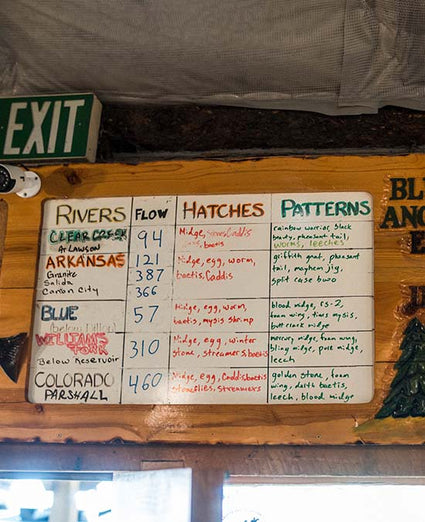 EXIT
RIVERS FLOW HATCHES PATTERNS
CLEAR CREEK
AT LAWSON
94
Midge,
baetis
rainbow warrior, black
beauty, pheasant tail,
worms, leeches
ARKANSAS
Granite
Salida
Canon City
121
387
366
Midge, egg, worm,
baetis, Caddis
griffith gnat, pheasant
tail, mayhem, jig,
split case bwo
BLUE
(below Dillon)
57
Midge, egg, worm,
baetis, mysis shrimp
blood midge, rs-2,
foam wing, tims mysis,
butt crack midge
WILLIAMS
FORK
Below Reservoir
310
Midge, egg, winter
stone, streamers, baetis
mercury midge, foam wing,
bling midge, pure midge,
leech
COLORADO
PARSHALL
460
Midge, egg, Caddis, baetis
stoneflies, streamers
golden stone, foam
wing, darth baetis,
leech, blood midge
BL
AN